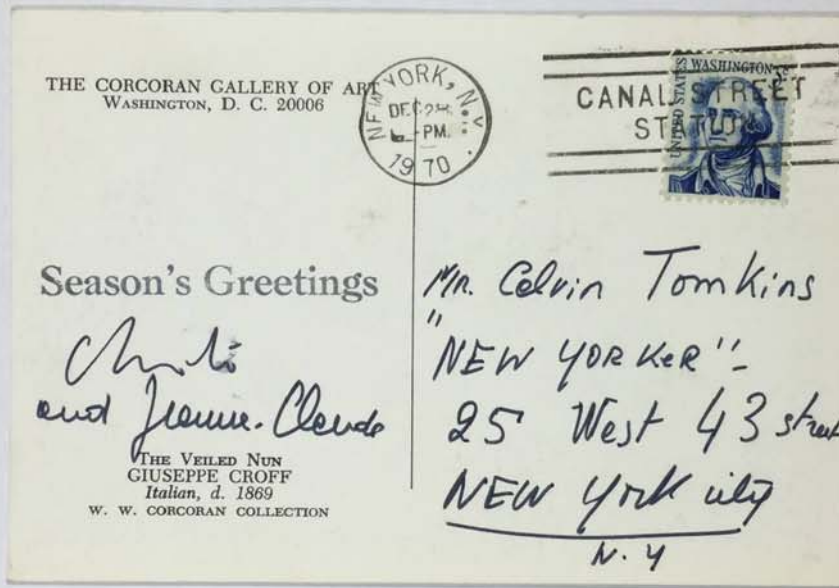 THE CORCORAN GALLERY OF ART
WASHINGTON, D. C. 20006
NEW YORK, N.Y.
DEC
PM
1970
CANAL STREET
STATION
UNITED STATES
WASHINGTON 5c
Season's Greetings
Christo
and Jeanne-Claude
THE VEILED NUN
GIUSEPPE CROFF
Italian, d. 1869
W. W. CORCORAN COLLECTION
Mr. Calvin Tomkins
"NEW YORKER" -
25 West 43 street
NEW YORK city
N.Y